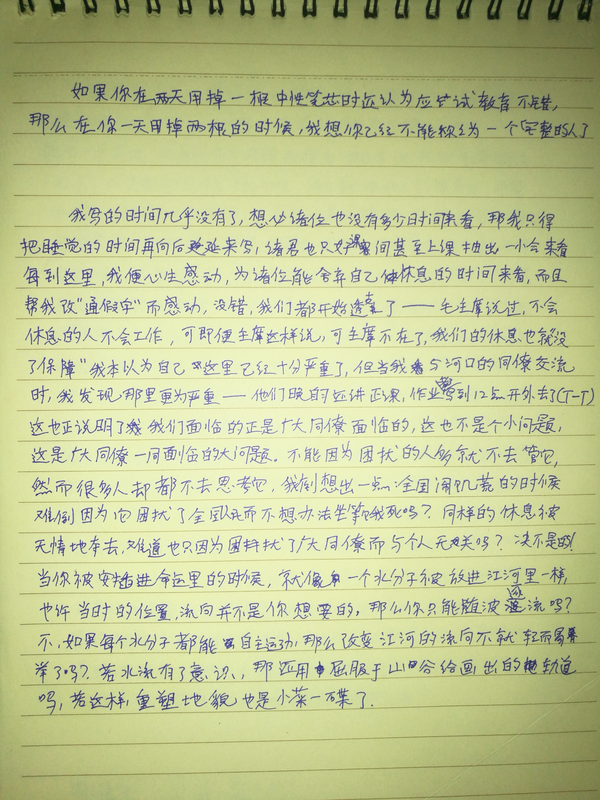 如果你在两天用掉一根中性笔芯时还认为应试教育不错，
那么在你一天用掉两根的时候，我想你已经不能称之为一个完整的人了
我写的时间几乎没有了，想必诸位也没有多少时间来看，那我只得
把睡觉的时间再向后延延来写，诸君也只好课间甚至上课抽出一小会来看
每到这里，我便心生感动，为诸位能舍弃自己休息的时间来看，而且
帮我改"通假字"而感动，没错，我们都开始透支了——毛主席说过，不会
休息的人不会工作，可即便主席这样说，可主席不在了，我们的休息也就没
了保障"我本以为自己这里已经十分严重了，但当我与河口的同僚交流
时，我发现那里更为严重——他们晚自还讲正课，作业写到12点开外去了(T-T)
这也正说明了我们面临的正是广大同僚面临的，这也不是个小问题，
这是广大同僚一同面临的大问题。不能因为困扰的人多就不去管它，
然而很多人却都不去思考它，我倒想出一点：全国闹饥荒的时候
难倒因为它困扰了全国人民而不想办法坐等饿死吗？同样的休息被
无情地夺去，难道也只因为困扰了广大同僚而与个人无关吗？决不是的！
当你被安插进命运里的时候，就像一个水分子被放进江河里一样，
也许当时的位置，流向并不是你想要的，那么你只能随波逐流吗？
不，如果每个水分子都能自主运动，那么改变江河的流向不就轻而易
举了吗？若水流有了意识，那还用屈服于山谷给画出的轨道
吗，若这样，重塑地貌也是小菜一碟了.